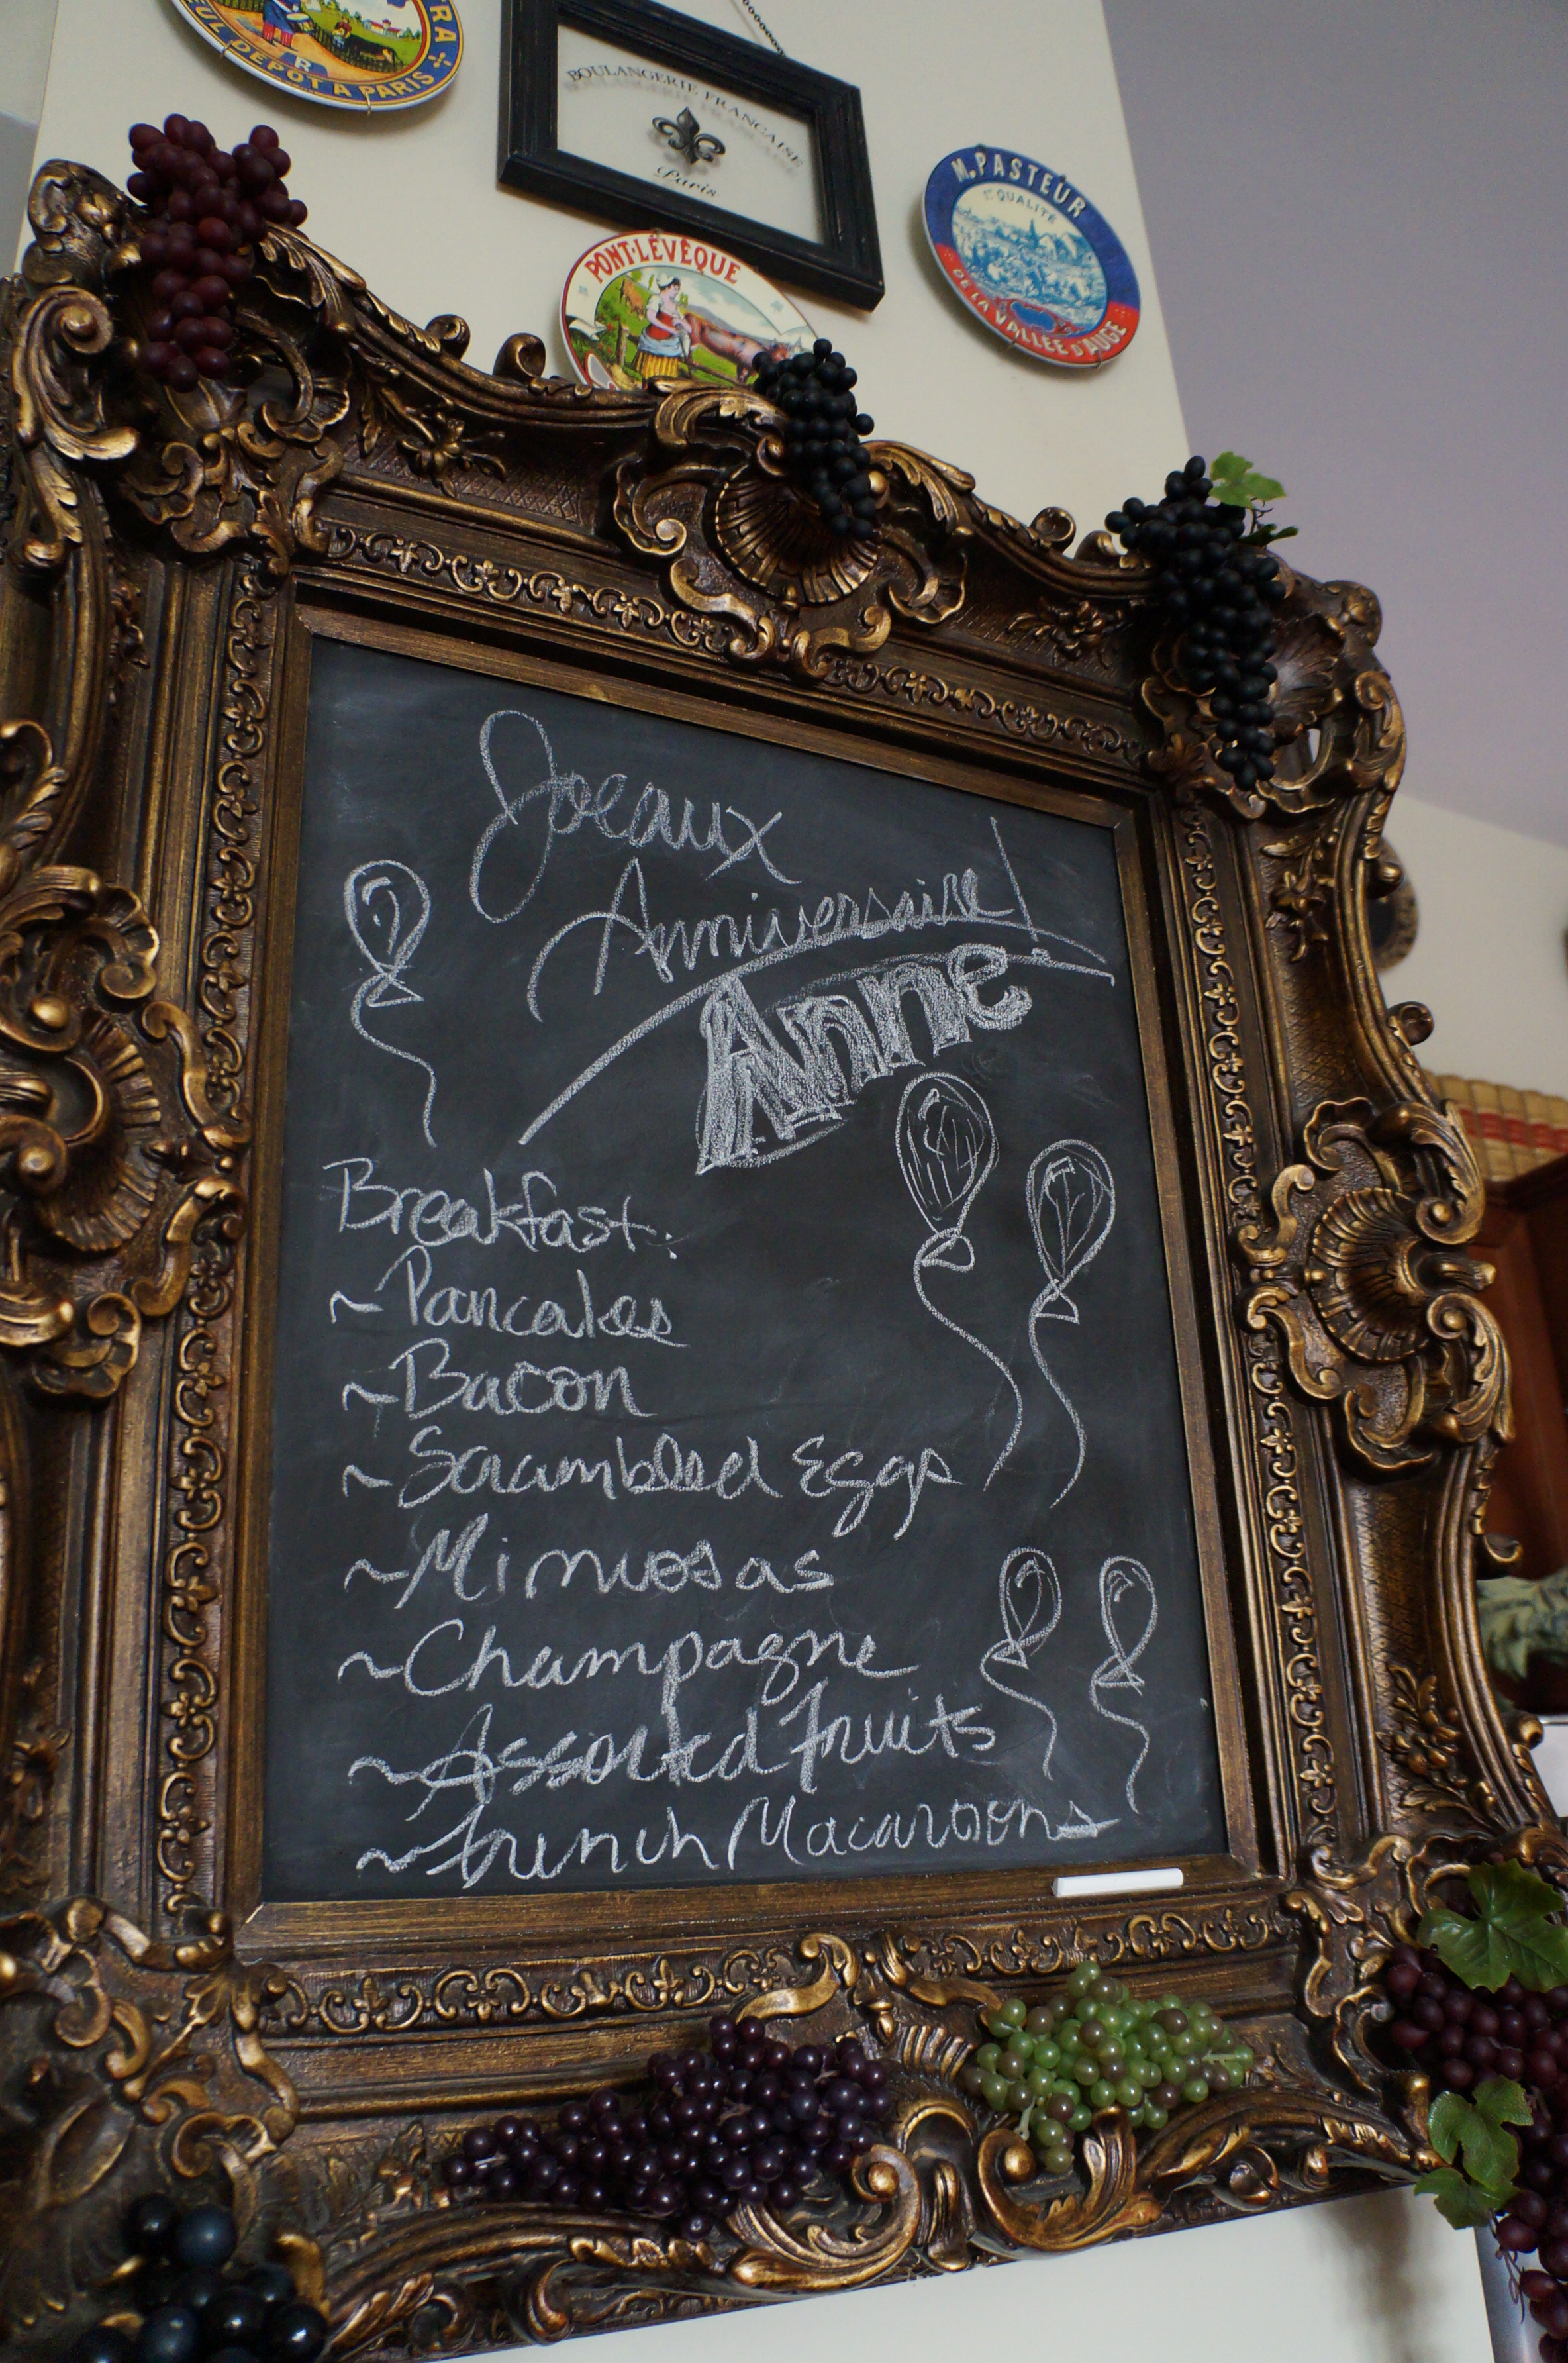 RA
EUL DEPOT A PARIS
R
BOULANGERIE FRANCAISE
Paris
M. PASTEUR
QUALITÉ
DE LA VALLÉE D'AUGE
PONT-L'ÉVÊQUE
Joeaux
Anniversaire!
Anne
Breakfast:
~Pancakes
~Bacon
~Scrambled Eggs
~Mimosas
~Champagne
~Assorted Fruits
~French Macaroons